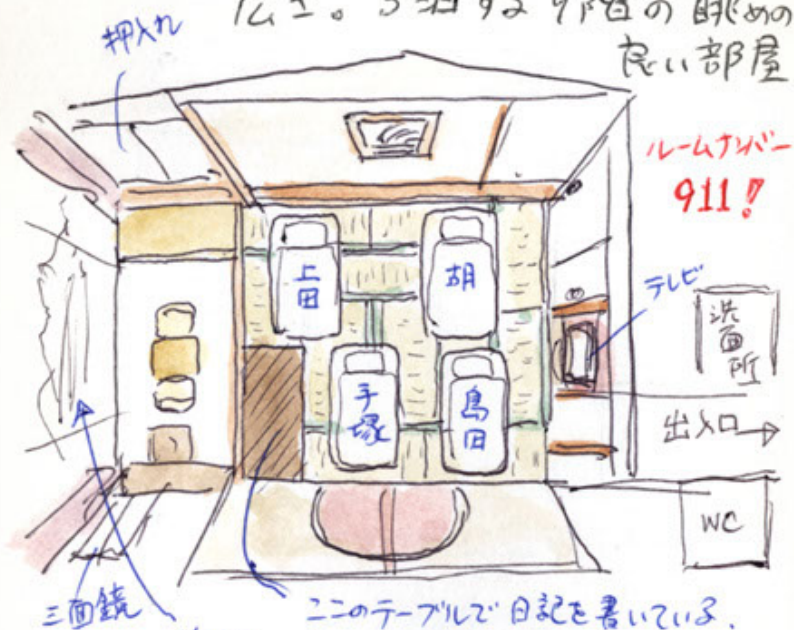 広さ。3泊する9階の眺めの
良い部屋
押入れ
ルームナンバー
911!
テレビ
上田
胡
手塚
島田
洗面所
出入口→
WC
三面鏡
ここのテーブルで日記を書いている.